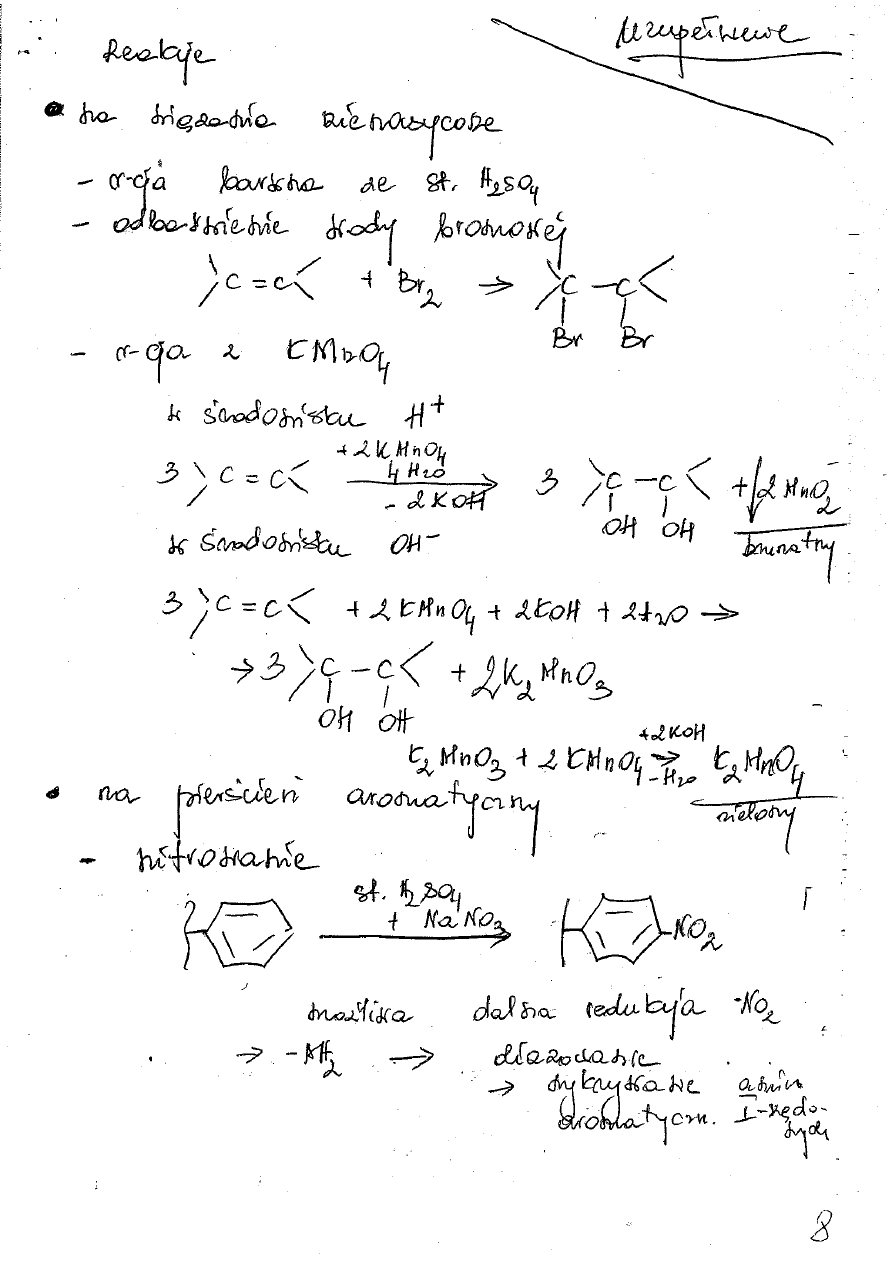 Reakcje
Uzupełnienie
• na wiązania nienasycone
- r-cja barwna ze st. H2SO4
- odbarwienie wody bromowej
>C=C< + Br2 → >C-C<
Br Br
- r-cja z KMnO4
w środowisku H+
3 >C=C< +2KMnO4 4H2O - 2KOH → 3 >C-C< + ↓2MnO2
OH OH brunatny
w środowisku OH-
3 >C=C< + 2KMnO4 + 2KOH + 2H2O →
→ 3 >C-C< + 2K2MnO3
OH OH
K2MnO3 + 2KMnO4 +2KOH → -H2O K2MnO4
zielony
• na pierścień aromatyczny
- nitrowanie
st. H2SO4
+ NaNO3
NO2
możliwa dalsza redukcja -NO2
→ -NH2 → diazowanie
→ wykrywanie amin
aromatyczn. I-rzędo-
wych
8